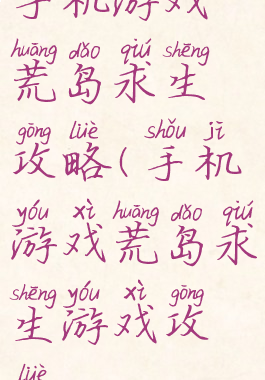 手机游戏
huāng dǎo qiú shēng
荒岛求生
gōng lüè shǒu jī
攻略(手机
yóu xì huāng dǎo qiú
游戏荒岛求
shēng yóu xì gōng
生游戏攻
lüè